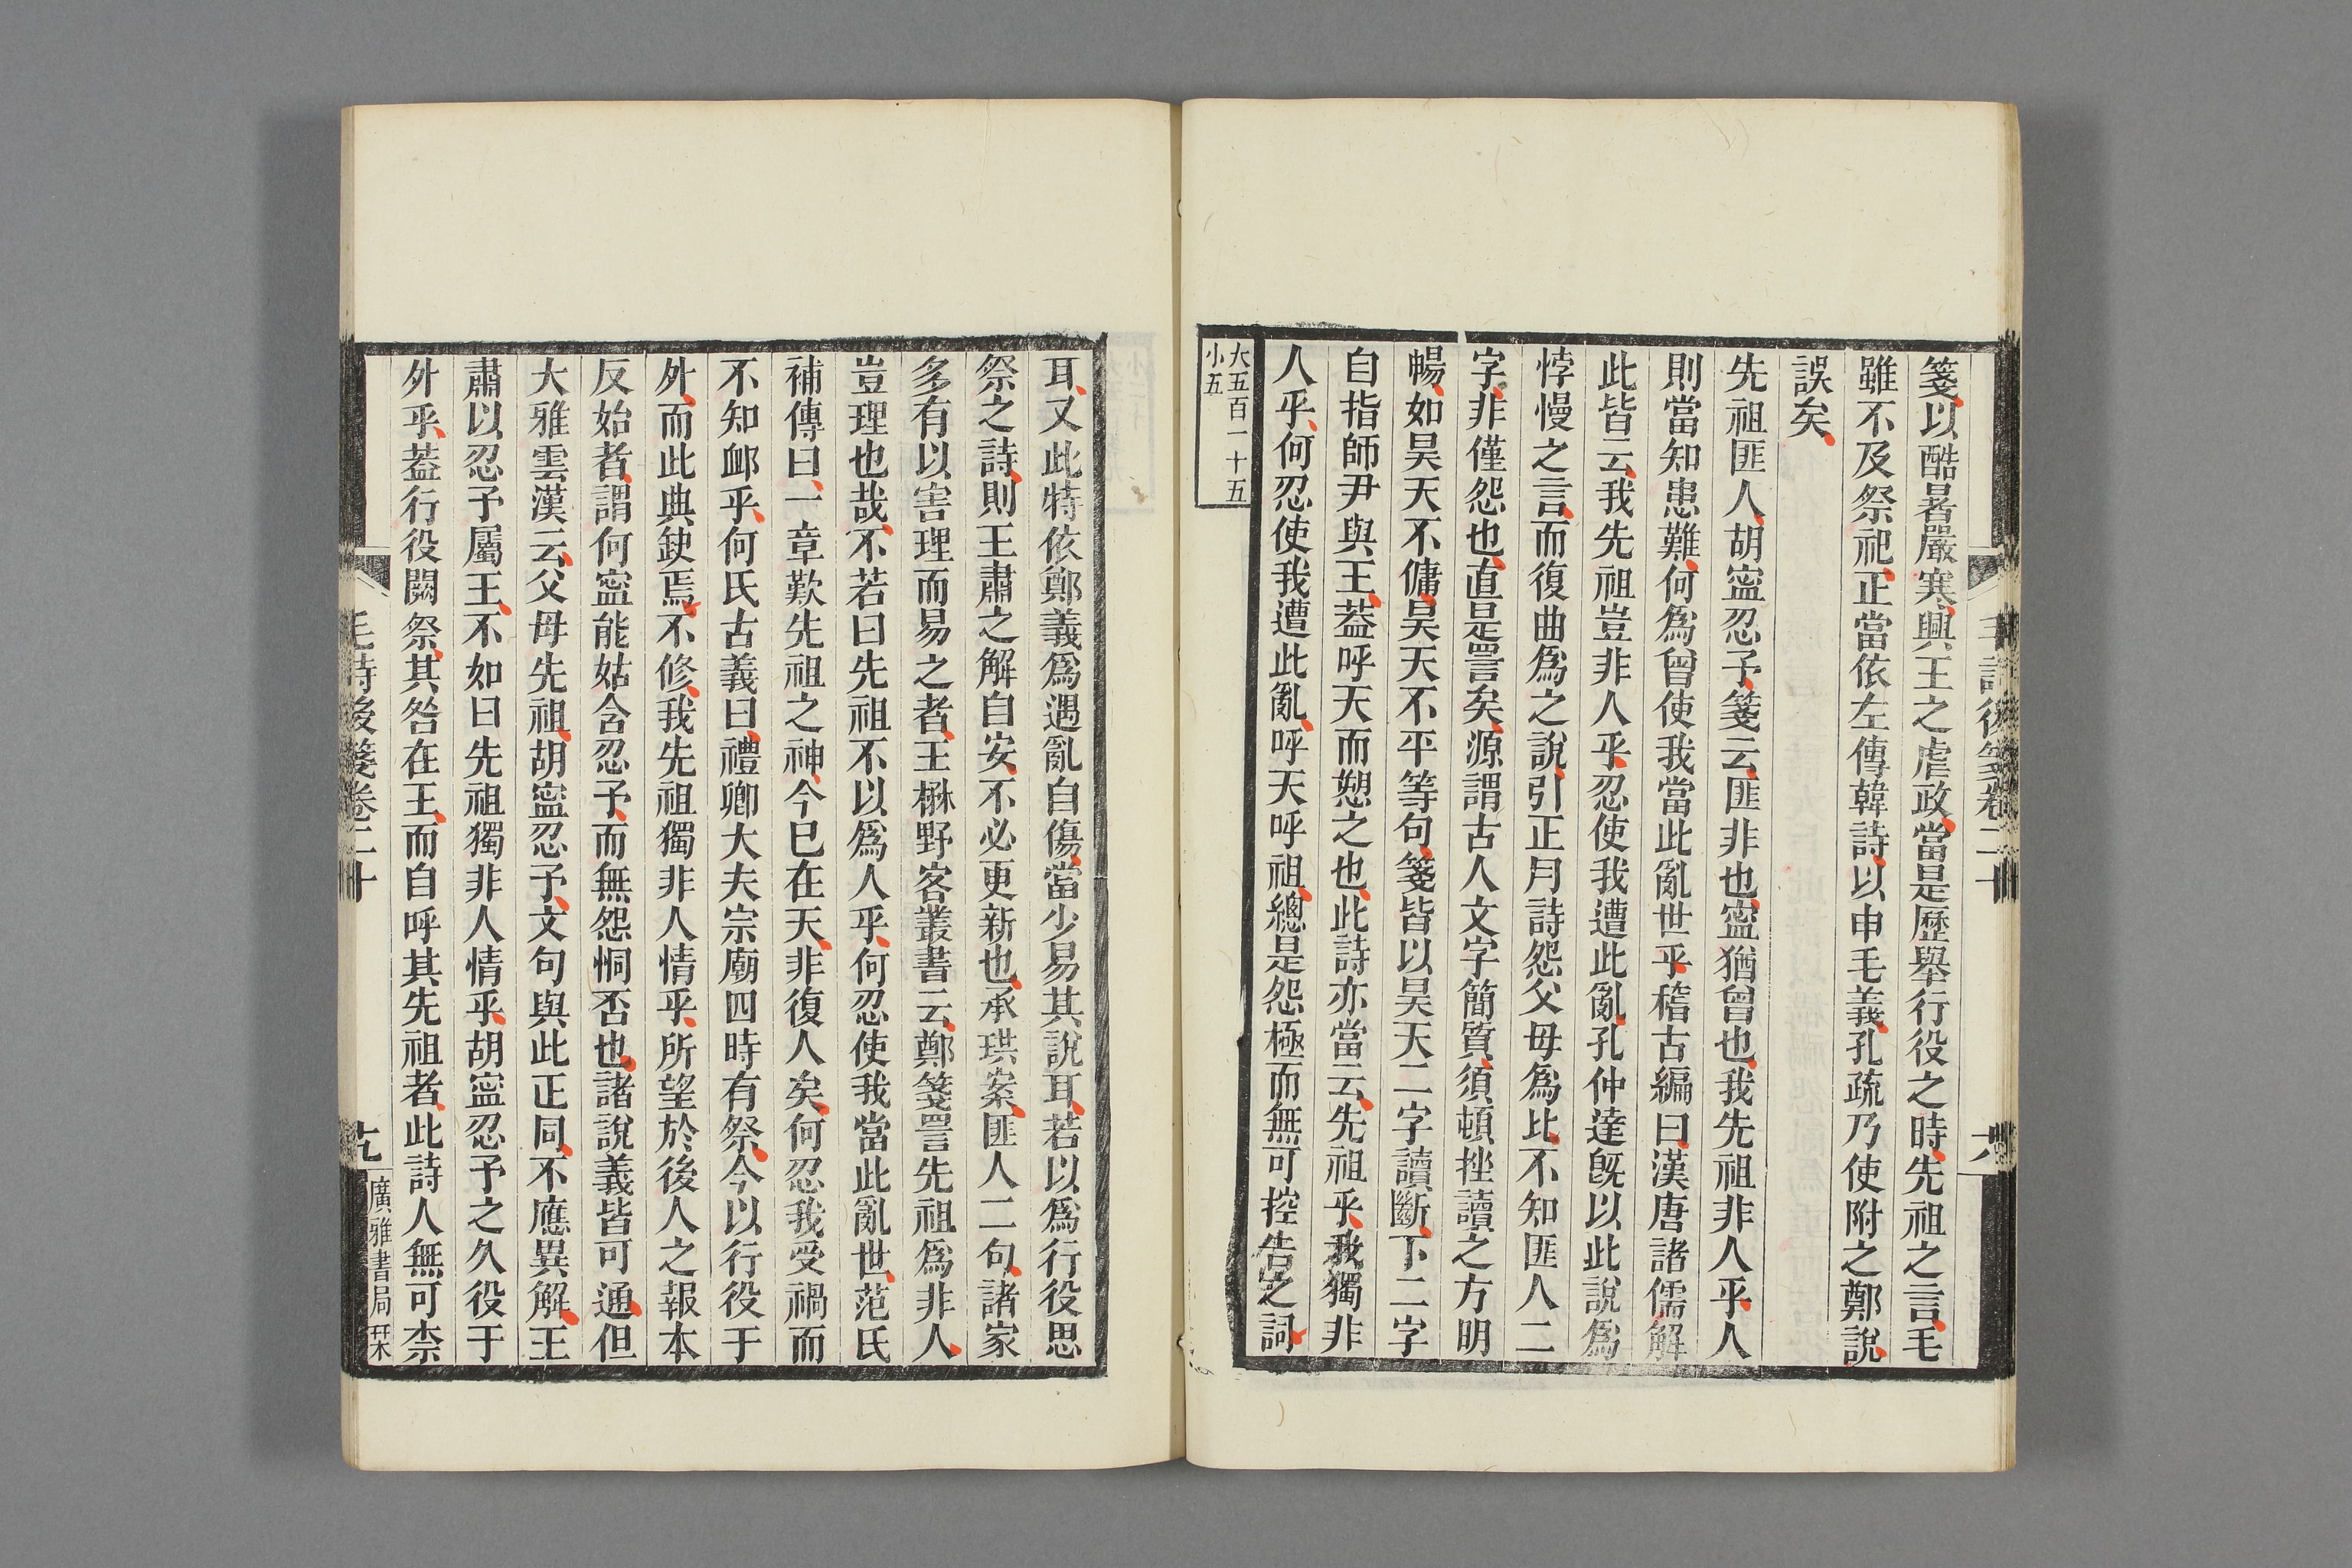 毛詩後箋卷二十
六
箋以酷暑嚴寒興王之虐政當是歷舉行役之時先祖之言毛
雖不及祭祀正當依左傳韓詩以申毛義孔疏乃使附之鄭說
誤矣
先祖匪人胡寍忍予箋云匪非也寍猶曾也我先祖非人乎人
則當知患難何爲曾使我當此亂世乎稽古編曰漢唐諸儒解
此皆云我先祖豈非人乎忍使我遭此亂孔仲達旣以此說爲
悖慢之言而復曲爲之說引正月詩怨父母爲比不知匪人二
字非僅怨也直是詈矣源謂古人文字簡質須頓挫讀之方明
暢如昊天不傭昊天不平等句箋皆以昊天二字讀斷下二字
自指師尹與王葢呼天而愬之也此詩亦當云先祖乎我獨非
人乎何忍使我遭此亂呼天呼祖總是怨極而無可控告之詞
大五百一十五
小五
耳又此特依鄭義爲遇亂自傷當少易其說耳若以爲行役思
祭之詩則王肅之解自安不必更新也承珙案匪人二句諸家
多有以害理而易之者王楙野客叢書云鄭箋詈先祖爲非人
豈理也哉不若曰先祖不以爲人乎何忍使我當此亂世范氏
補傳曰一章歎先祖之神今已在天非復人矣何忍我受禍而
不知卹乎何氏古義曰禮卿大夫宗廟四時有祭今以行役于
外而此典缺焉不修我先祖獨非人情乎所望於後人之報本
反始者謂何寍能姑含忍予而無怨恫否也諸說義皆可通但
大雅雲漢云父母先祖胡寍忍予文句與此正同不應異解王
肅以忍予屬王不如曰先祖獨非人情乎胡寍忍予之久役于
外乎葢行役闕祭其咎在王而自呼其先祖者此詩人無可柰
毛詩後箋卷二十
廣雅書局栞